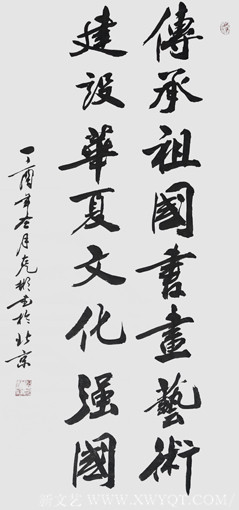 傳承祖國書畫藝術
建設華夏文化强國
丁酉年冬月虎彬書於北京
新文艺 WWW.XWYQT.COM